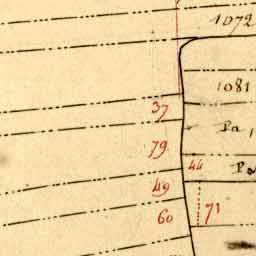 1072
1081
37
Pa
79
44
Pa
49
60
71